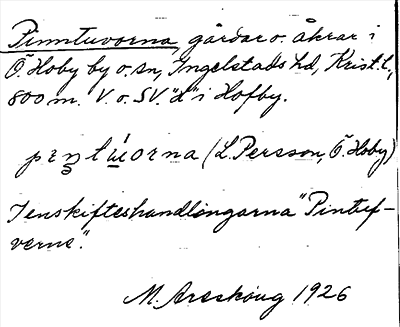 Pinntuvorna, gärdar o. åkrar i
Ö. Hoby by o. sn, Ingelstads hd, Krist. l.,
800 m. V. o. SV. "d" i Hofby.
(L. Persson, Ö. Hoby)
Ienskifteshandlingarna "Pintuf-
verne".
M. Areskoug 1926